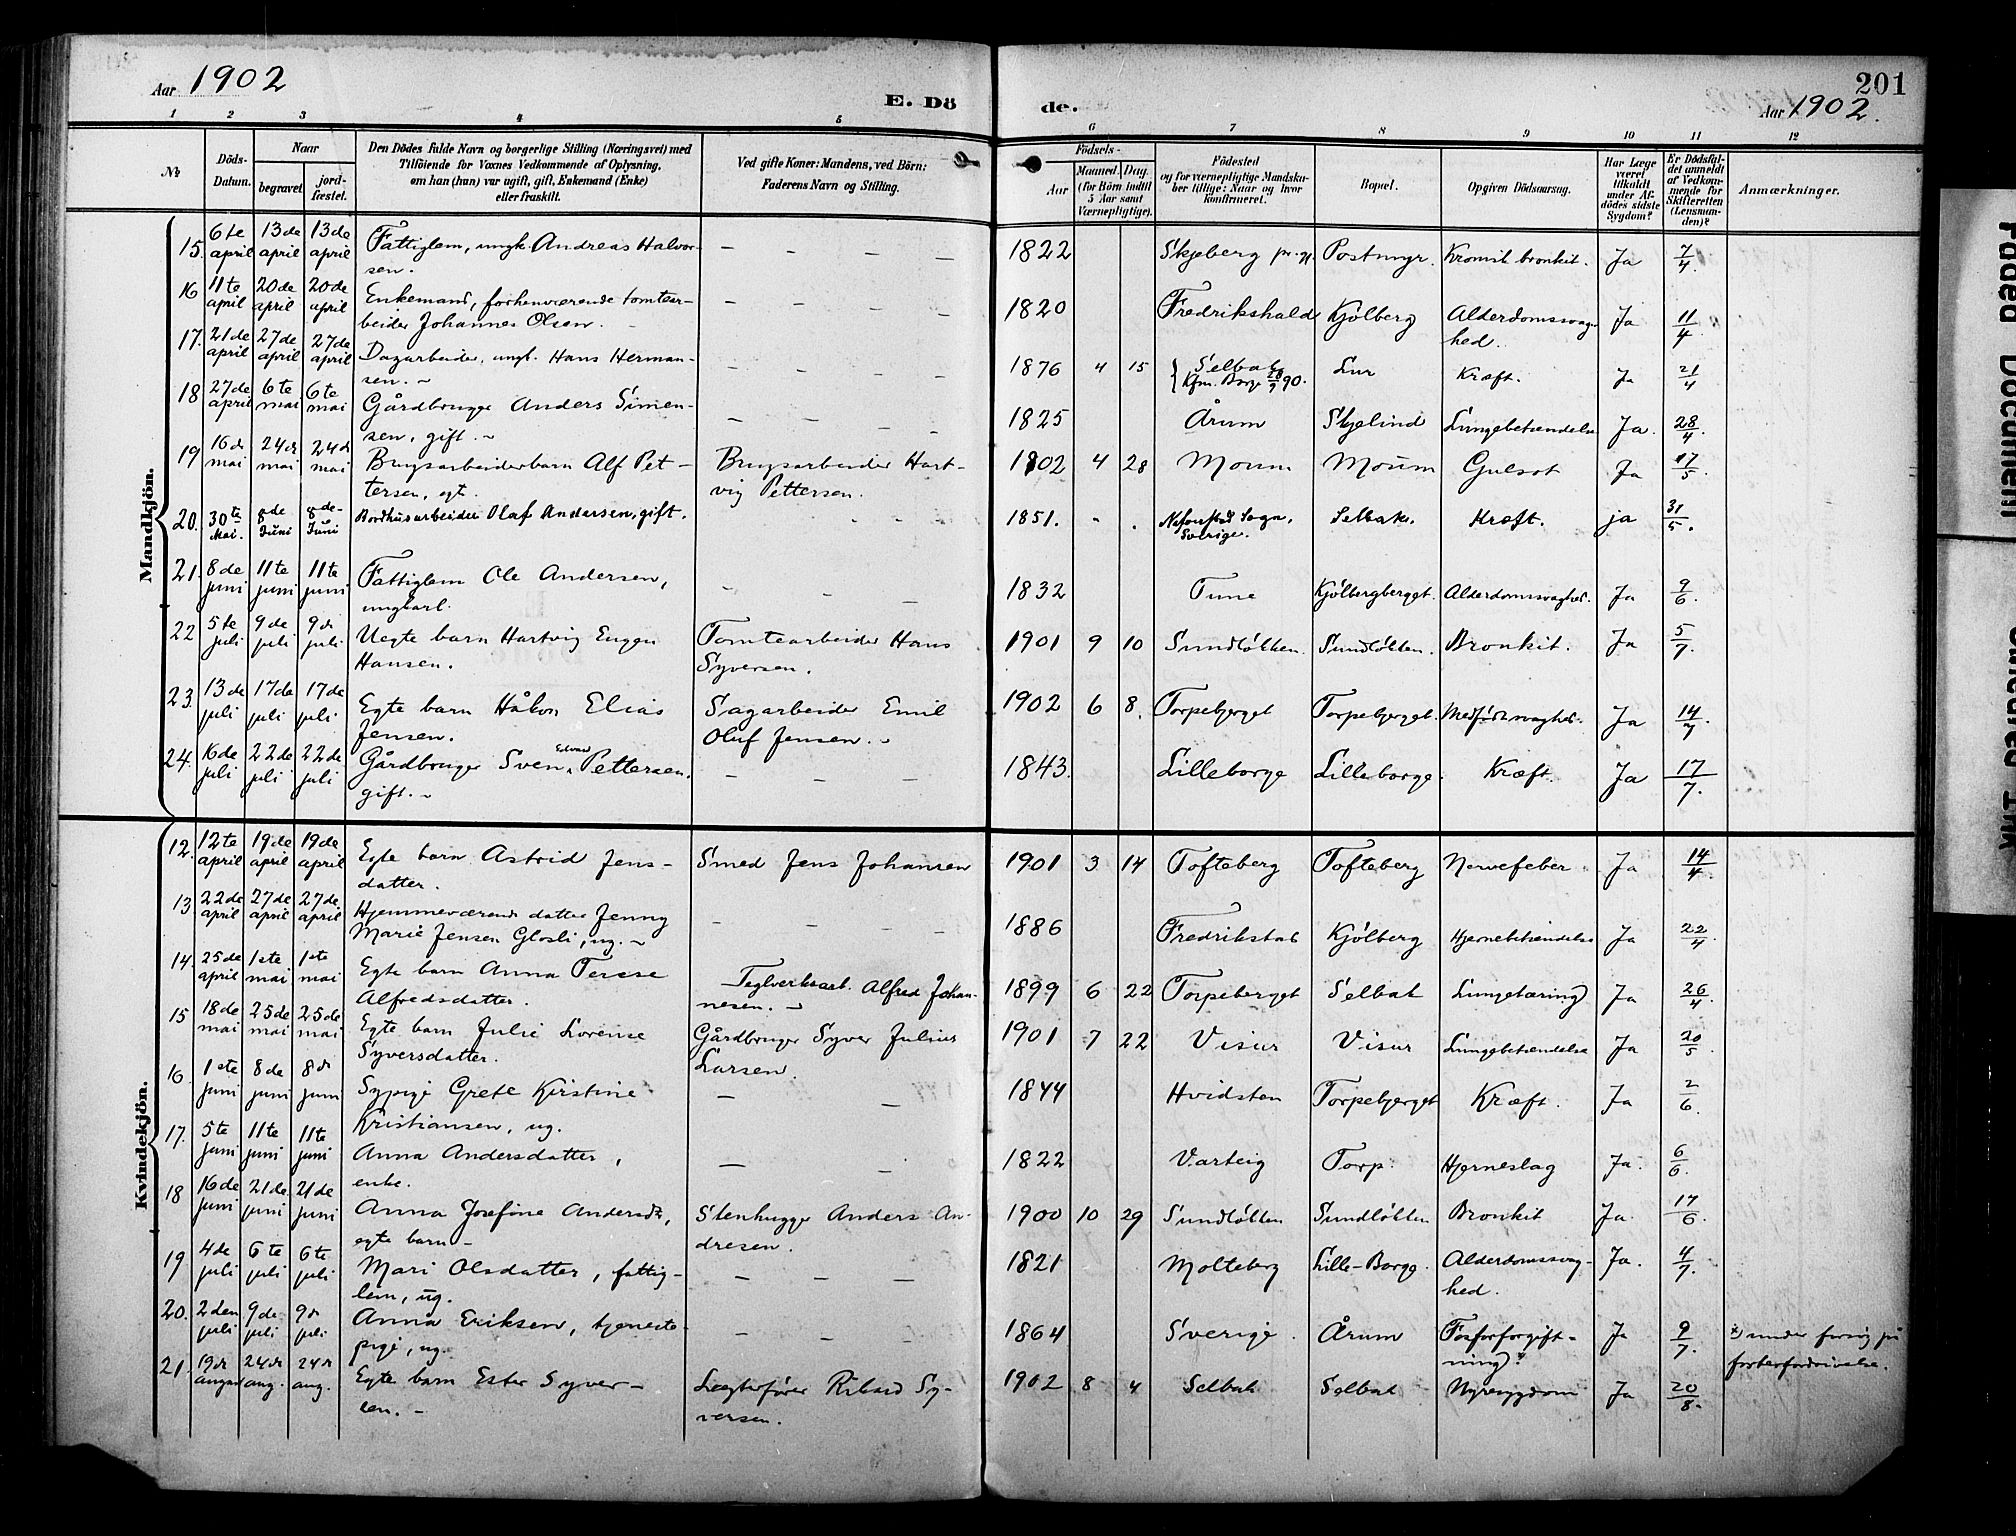 Aar 1902
E. Dö
de.
201
Aar 1902.
1 2 3 4 5 6 7 8 9 10 11 12
№
Döds-Datum.
Naar
begravet.
jord-fæstet.
Den Dödes fulde Navn og borgerlige Stilling (Næringsvei) med
Tilföiende for Voxnes Vedkommende af Oplysning,
om han (hun) var ugift, gift, Enkemand (Enke)
eller fraskilt.
Ved gifte Koner: Mandens, ved Börn:
Faderens Navn og Stilling.
Födsels-
Aar
Maaned. Dag.
(for Börn indtil
5 Aar samt
Værnepligtige).
Födested
og for værnepligtige Mandska-
ber tillige: Naar og hvor
konfirmeret.
Bopæl.
Opgiven Dödsaarsag.
Har Læge
været
tilkaldt
under Af-
dödes sidste
Sygdom?
Er Dödsfal-
det anmeldt
af Vedkom-
mende for
Skifteretten
(Lensman-
den)?
Anmærkninger.
Mandkjön.
15. 6te april 13de april 13de april Fattiglem, ungk. Andreas Halvor-
sen. — — — — 1822 Skjeberg pr.gj. Postmyr. Kronisk bronkit. Ja 7/4.
16 11te april 20de april 20de april Enkemand, forhenværende tomtear-
beider Johannes Olsen. — — — — 1820 Fredrikshald Kjölberg Alderdomssvag-
hed. Ja 11/4
17. 21de april 27de april 27de april Dagarbeider, ungk. Hans Herman-
sen. — — — — 1876 4 15 Selbak
Kfm. Borge 28/9 90. Lur Kræft. Ja 21/4
18 27de april 6te mai 6te mai Gårdbruger Anders Simen-
sen, gift. — — — — 1825 Årum Skjelind Lungebetændelse Ja. 28/4.
19 16de mai 24de mai 24de mai Brugsarbeiderbarn Alf Pet-
tersen, egt. Brugsarbeider Hart-
vig Pettersen. 1902 4 28 Moum Moum Gulsot Ja 17/5.
20. 30te Mai. 8de Juni 8de Juni Bordhusarbeider Olaf Andersen, gift. — — — 1851. Sogn,
Sverige. Selbak. Kræft. ja 31/5.
21. 8de juni 11te juni 11te juni Fattiglem Ole Andersen,
ungkarl. — — — 1832 Tune Kjölbergberget. Alderdomssvaghed. Ja 9/6.
22 5te juli 9de juli 9de juli Uegte barn Hartvig Eugen
Hansen. Tomtearbeider Hans
Syversen. 1901 9 10 Sundlökken. Sundlökken. Bronkit. Ja 5/7.
23. 13de juli 17de juli 17de juli Egte barn Håkon Elias
Jensen. Sagarbeider Emil
Oluf Jensen. 1902 6 8. Torpebjerget Torpebjerget. Medfödt svaghed. Ja 14/7.
24. 16de juli 22de juli 22de juli Gårdbruger Sven Edvard Pettersen.
gift. — — — 1843. Lilleborge Lilleborge. Kræft. Ja 17/7.
Kvindekjön.
12. 12te april 19de april 19de april Egte barn Astrid Jens-
datter. Smed Jens Johansen 1901 3 14 Tofteberg Tofteberg Nervefeber Ja 14/4
13 22de april 27de april 27de april Hjemmeværende datter Jenny
Marie Jensen Glosli, ug. — — — — 1886 Fredrikstad Kjölberg Hjernebetændelse Ja 22/4.
14. 25de april 1ste mai 1ste mai Egte barn Anna Terese
Alfredsdatter. Teglverksarb. Alfred Johan-
nesen. 1899 6 22 Torpeberget Selbak Lungetæring Ja 26/4.
15 18de mai 25de mai 25de mai Egte barn Julie Lorense
Syversdatter. Gårdbruger Syver Julius
Larsen. 1901 7 22 Visur Visur Lungebetændelse Ja 20/5.
16. 1ste juni 8de juni 8de juni Sypige Grete Kirstine
Kristiansen, ug. — — 1844 Hvidsten Torpebjerget Kræft. Ja 2/6.
17. 5te juni 11te juni 11te juni Anna Andersdatter,
enke. — — 1822 Varteig Torp. Hjerneslag Ja. 6/6.
18 16de juni 21de juni 21de juni Anna Josefine Andersdt.,
egte barn Stenhugger Anders An-
dresen. 1900 10 29 Sundlökken Sundlökken Bronkit Ja. 17/6.
19 4de juli 6te juli 6te juli Mari Olsdatter, fattig-
lem, ug. — — — 1821 Molteberg Lille-Borge. Alderdomssvag-
hed. Ja. 4/7.
20. 2den juli 9de juli 9de juli Anna Eriksen, tjeneste-
pige, ug. — — — 1864 Sverige. Årum Fosforforgift-
ning x) Ja 9/7. x) under forsøg på
fosterfordrivelse.
21. 19de august 24de aug. 24de aug. Egte barn Ester Syver-
sen. Lægterfører Rikard Sy-
versen. 1902 8 4 Selbak Selbak Nyresygdom Ja 20/8.
Faded Document